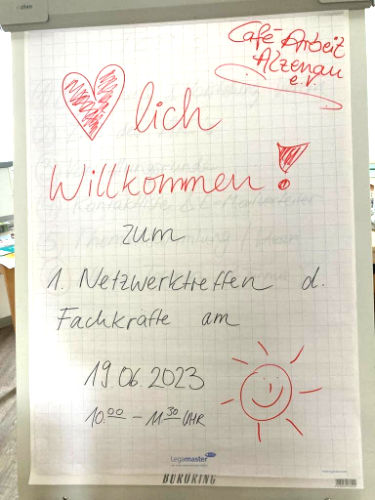 Café Arbeit
Alzenau
e.V.
lich
Willkommen!
zum
1. Netzwerktreffen d.
Fachkräfte am
19.06.2023
10.00 - 11.30 UHR
Legamaster